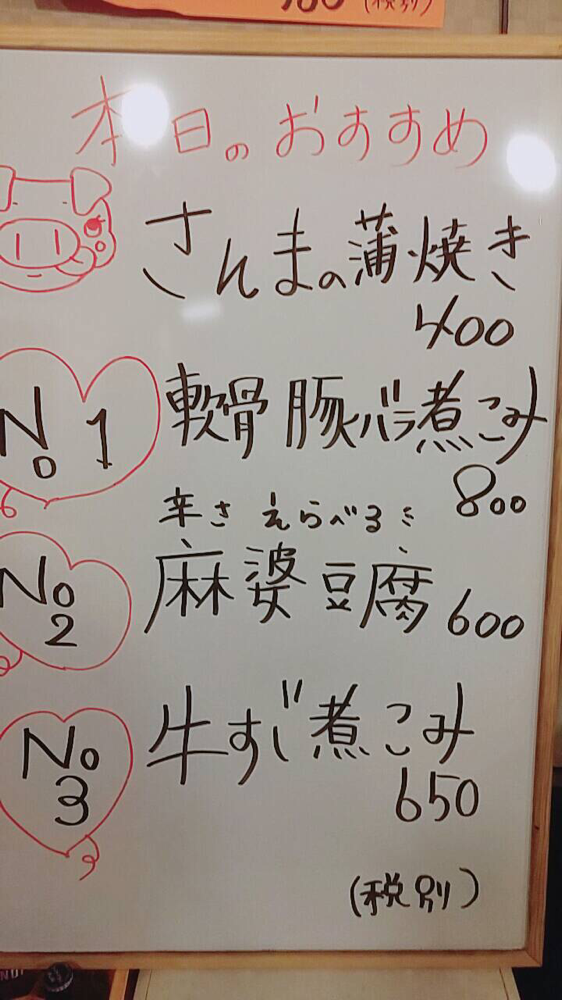 (税別)
本日のおすすめ
さんまの蒲焼き
400
No 1
軟骨豚バラ煮こみ
800
辛さえらべるミ
No 2
麻婆豆腐 600
No 3
牛すじ煮こみ
650
(税別)